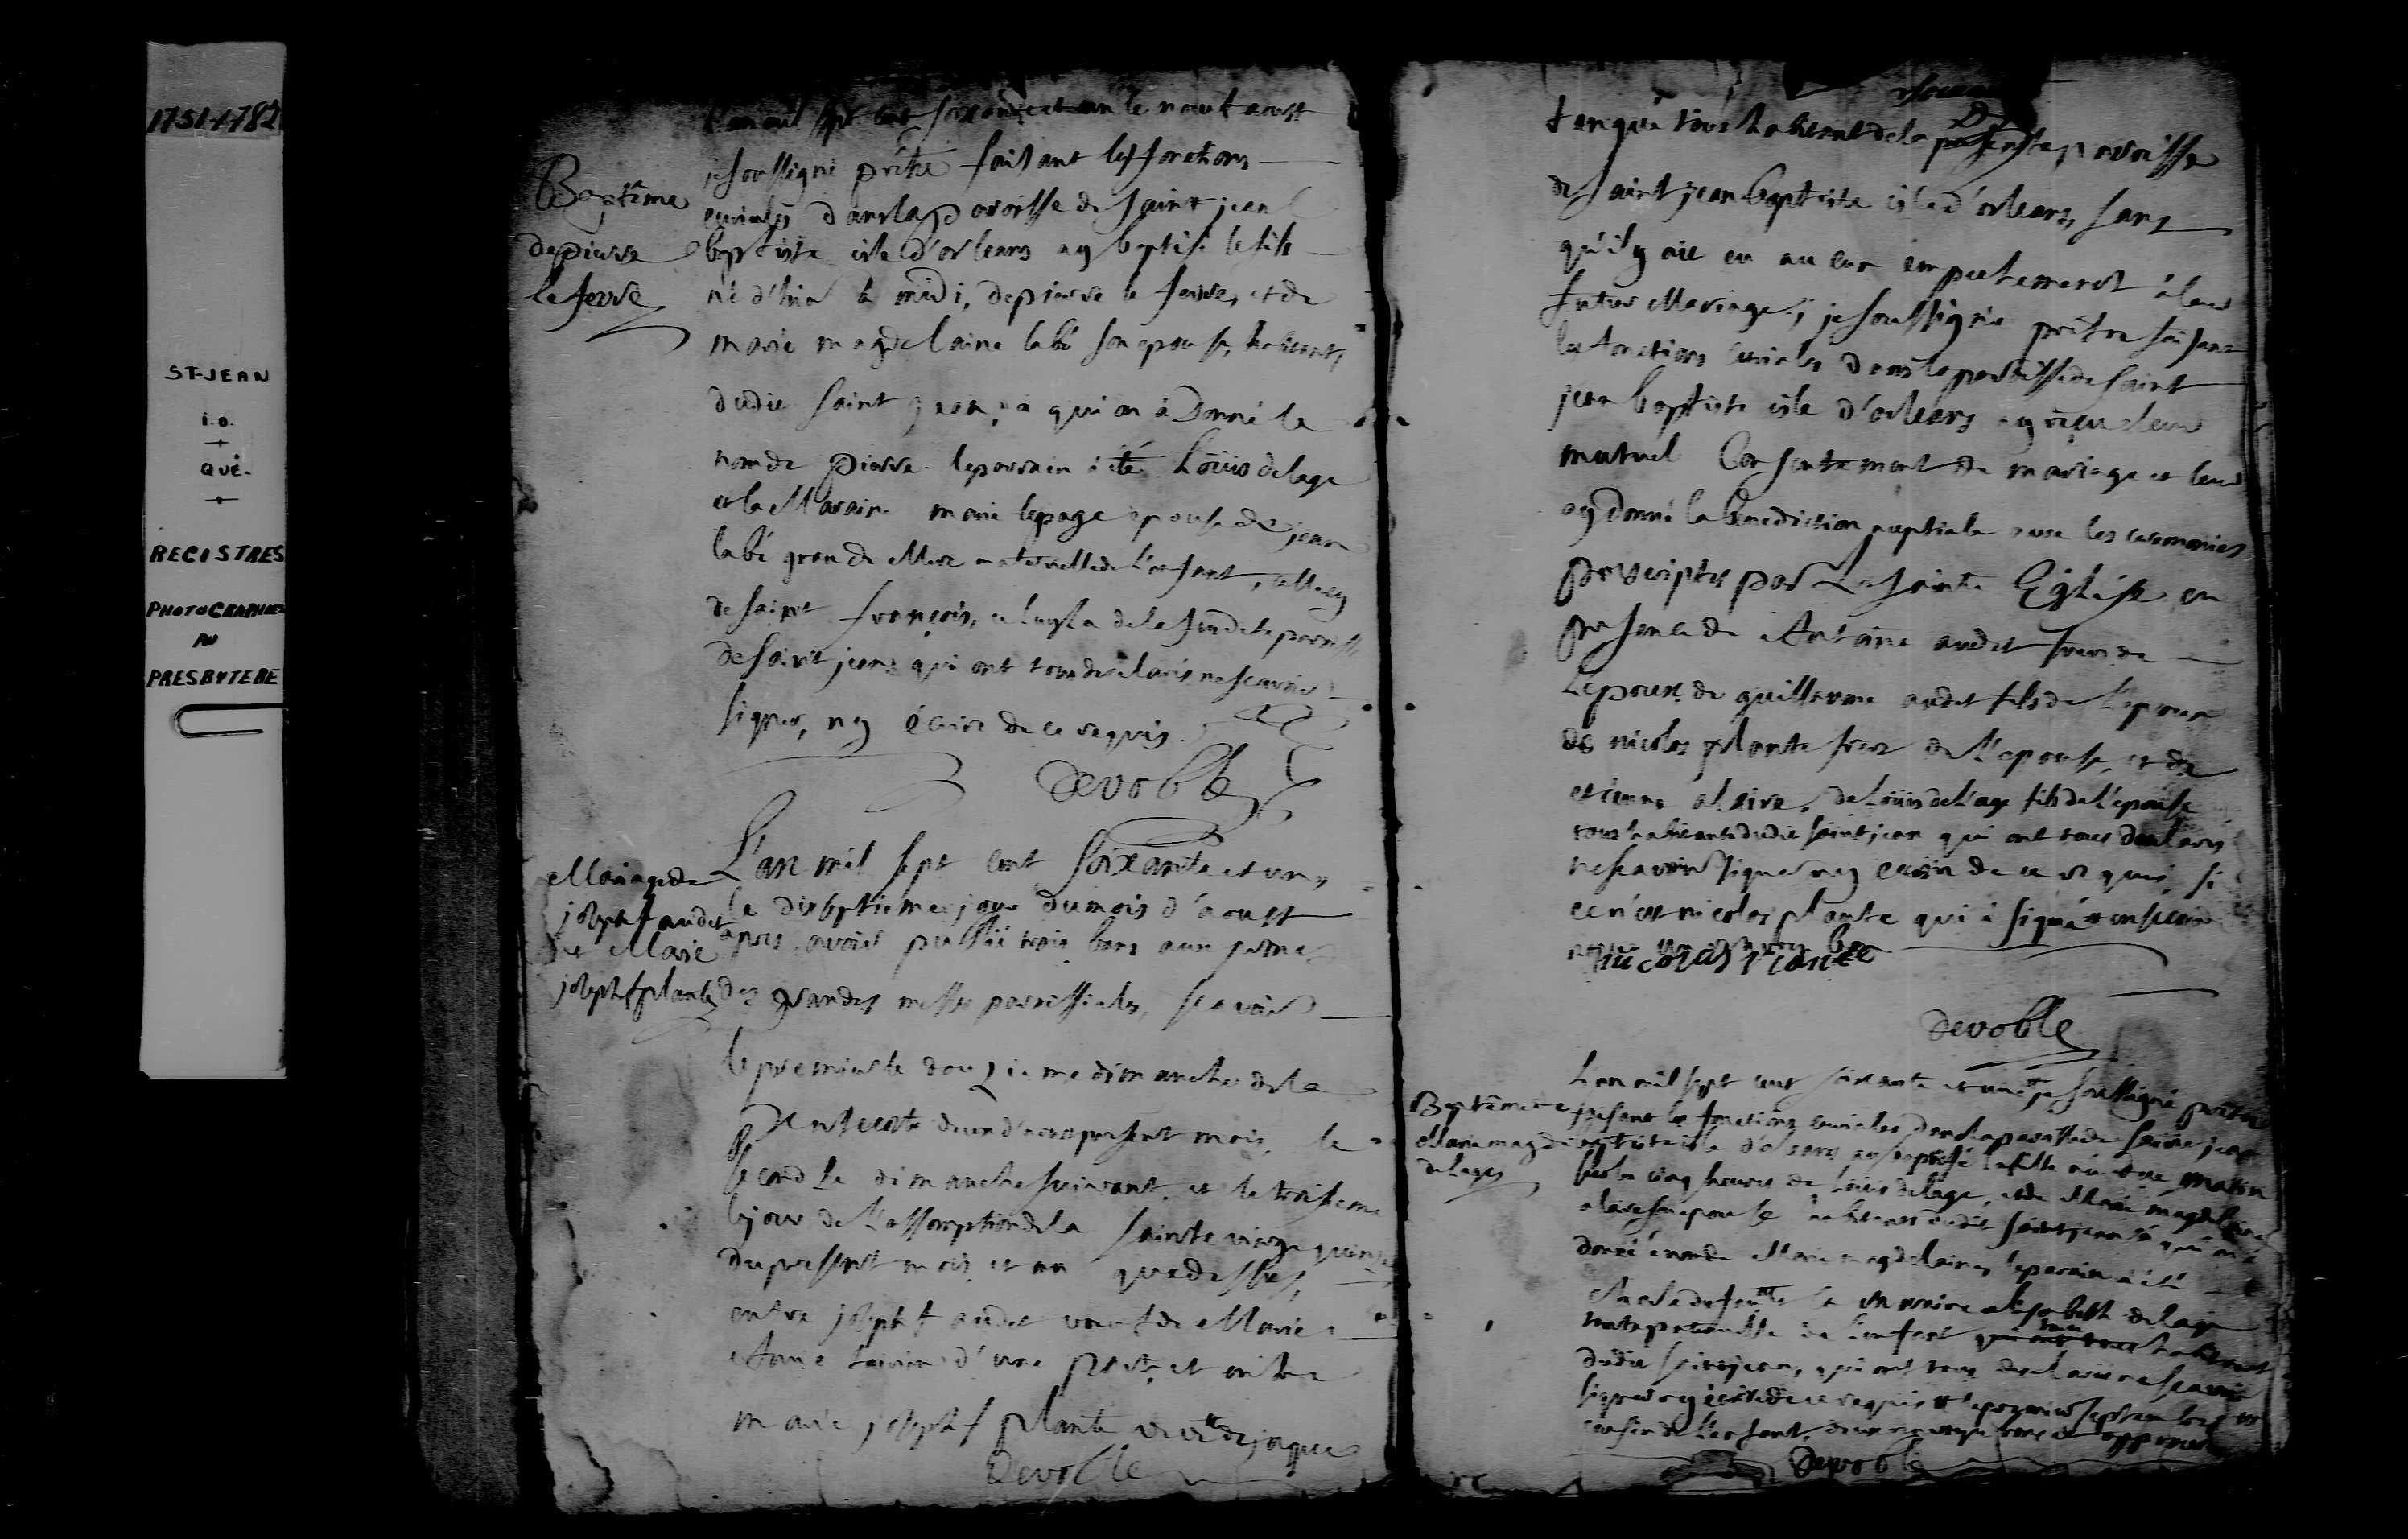 1751-1782
ST-JEAN
i.o.
QUÉ.
REGISTRES
PHOTOGRAPHIES
AU
PRESBYTERE
Baptême
de pierre
leferre
L'an mil sept cent soixante et un le neuf aoust
je soussigné prêtre faisant les fonctions
curiales dans la paroisse de saint jean
baptiste isle d'orleans ay baptisé le fils
né d'hier à midi, de pierre le ferre, et de
marie magdelaine labé son epouse, habitants
dudit saint jean, à qui on à donné le
nom de pierre. le parrain à été Loüis delage
et la Maraine marie lepage epouse de jean
labé grande Mere maternelle de l'enfant,
de saint françois, de la paroisse
de saint jean qui ont tous declarés ne scavoir
signer, ny écrire de ce requis.
Devoble
Mariage de
joseph audet
et Marie
joseph plante
L'an mil sept cent soixante et un,
le dixseptieme jour du mois d'aoust
apres avoir publié trois bans aux prônes
des grandes messes paroissiales, scavoir
le premier le douzieme dimanche de la
Pentecoste du present mois, le
second le dimanche suivant, et le troisieme
le jour de l'assomption de la sainte vierge quinze
du present mois et an que dessus,
entre joseph audet veuf de Marie
d'une part, et entre
marie joseph plante veuve de jaque
Devoble
tous habitants de la presente paroisse
de saint jean baptiste isle d'orleans, sans
qu'il y aie eu aucun empechement à leur
futur Mariage; je soussigné prêtre faisant
les fonctions curiales dans la paroisse de saint
jean baptiste isle d'orleans ay reçu leur
mutuel Consentement de mariage et leur
ay donné la benediction nuptiale avec les ceremonies
prescriptes par La sainte Eglise en
presence de Antoine audet frere de
L'epoux de guillaume audet fils de l'epoux
de nicolas plante frere de L'epouse, et de
etienne alaire, de Loüis delage fils de l'epouse
tous habitants dudit saint jean qui ont tous declarés
ne scavoir signer ny ecrire de ce requis, si
ce n'est nicolas plante qui à signé
nicolas plante
Devoble
Baptême de
Marie magde
delage
L'an mil sept cent soixante et un je soussigné prêtre
faisant les fonctions curiales dans la paroisse de saint jean
baptiste isle d'orleans, ay baptisé la fille née matin
sur les cinq heures de Loüis delage, et de Marie magdelaine
alaire son epouse habitants dudit saint jean à qui on à
donné le nom de Marie magdelaine, le parain à été
la maraine delage
tante paternelle de l'enfant qui ont tous habitants
dudit saint jean, qui ont tous declarés ne scavoir
signer ny écrire de ce requis le premier septembre
cousin de l'enfant,
Devoble